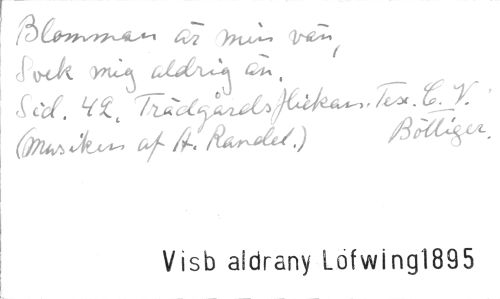 Blomman är min vän,
Svek mig aldrig än.
Sid. 42. Trädgårdsflickan. Tex. C. V.
(Musiken af A. Randel.) Böttiger.
Visb aldrany Löfwing1895